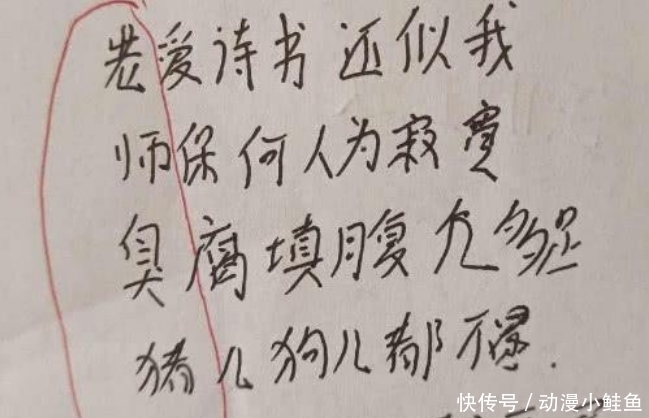 老爱诗书还似我
师保何人为寂寞
臭腐填腹凡
猪儿狗儿都不
快传号/动漫小鲑鱼